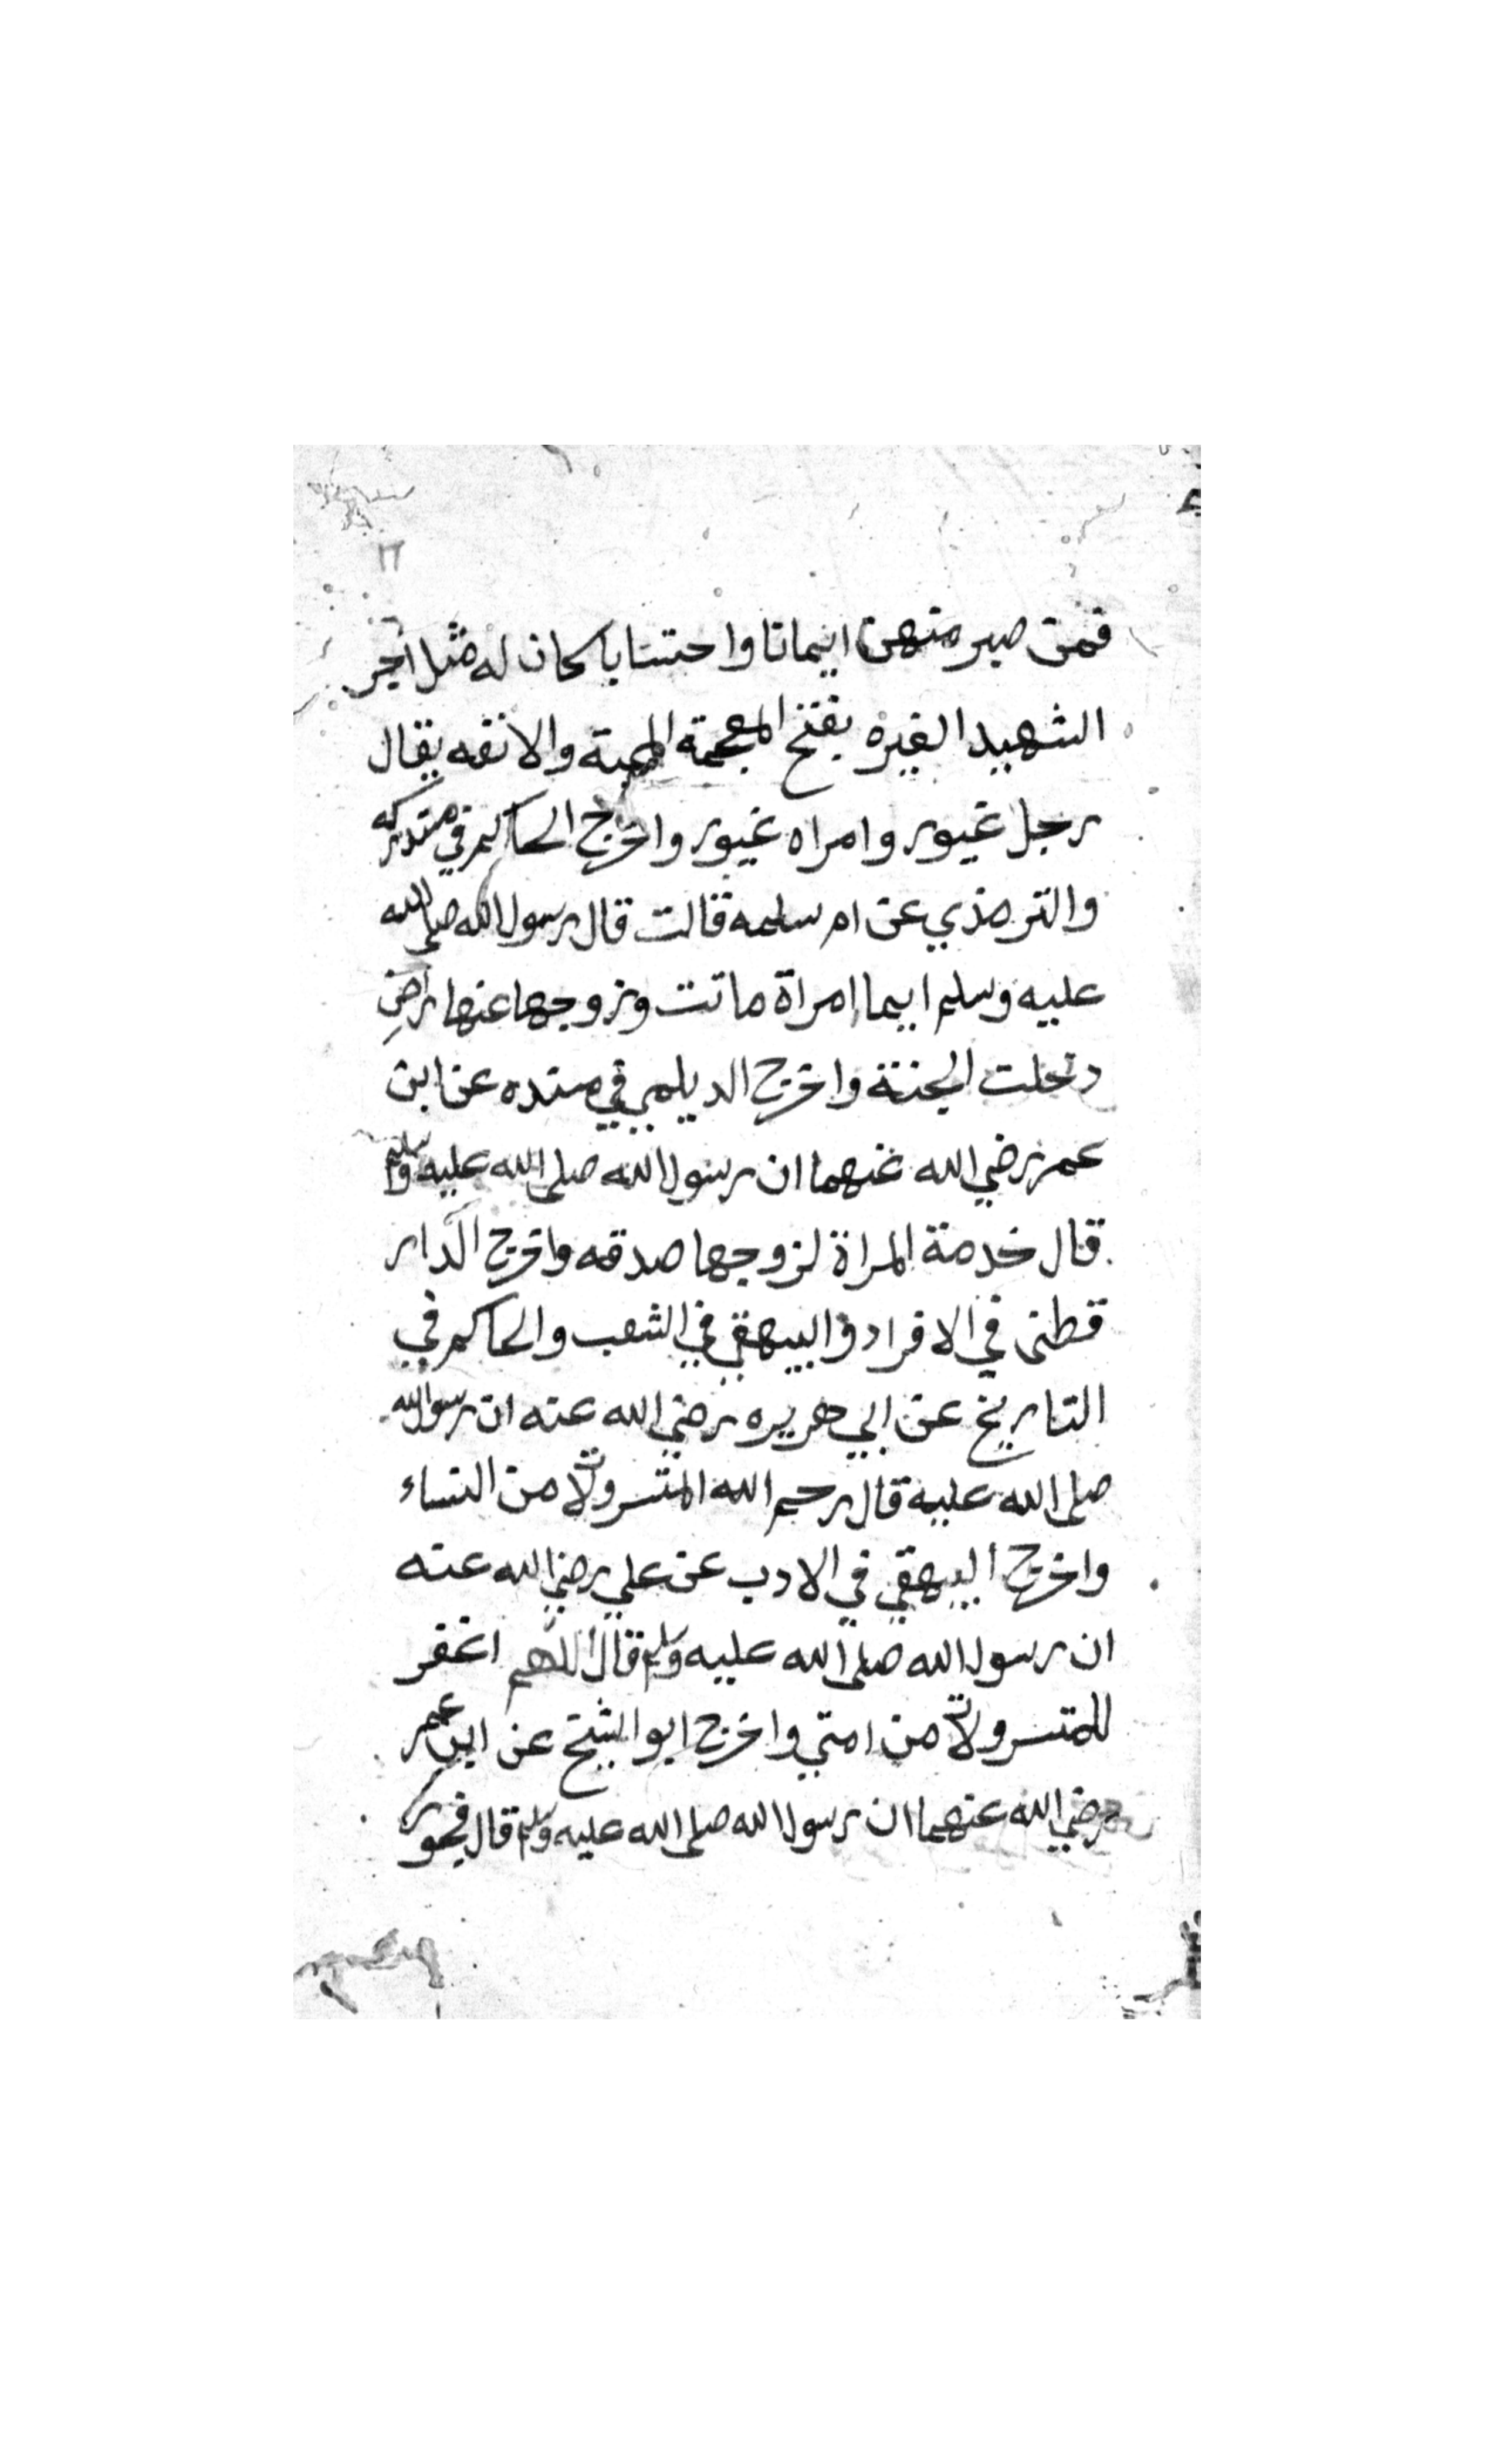 ١٦
فمن صبر منهن ايمانا واحتسابا كان له مثل اجر
الشهيد الغيره بفتح المعجمة المحبة والانفه يقال
رجل غيور وامراه غيور واخرج الحاكم في مستدركه
والترمذي عن ام سلمه قالت قال رسول الله صلى الله
عليه وسلم ايما امراة ماتت وزوجها عنها راضٍ
دخلت الجنة واخرج الديلمي في مسنده عن ابن
عمر رضي الله عنهما ان رسول الله صلى الله عليه وسلم
قال خدمة المراة لزوجها صدقه واخرج الدار
قطنى في الافراد والبيهقي في الشعب والحاكم في
التاريخ عن ابي هريره رضي الله عنه ان رسول الله
صلى الله عليه قال رحم الله المتسرولات من النساء
واخرج البيهقي في الادب عن علي رضي الله عنه
ان رسول الله صلى الله عليه وسلم قال اللهم اغفر
للمتسرولات من امتي واخرج ابو الشيخ عن ابن عمر
رضي الله عنهما ان رسول الله صلى الله عليه وسلم قال